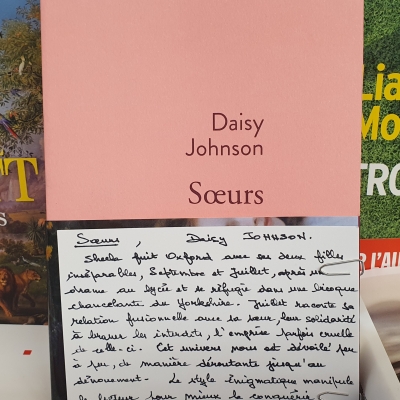 Daisy
Johnson
Sœurs
Lia
Mo
TRO
R L'AU
ET
S
Sœurs, Daisy JOHNSON.
Sheela fuit Oxford avec ses deux filles
inséparables, Septembre et Juillet, après un
drame au lycée et se réfugie dans une bicoque
chancelante du Yorkshire. Juillet raconte sa
relation fusionnelle avec sa sœur, leur solidarité
à braver les interdits, l'emprise parfois cruelle
de celle-ci. Cet univers nous est dévoilé peu
à peu, de manière déroutante jusqu'au
dénouement. Le style énigmatique manipule
le lecteur pour mieux le conquérir.